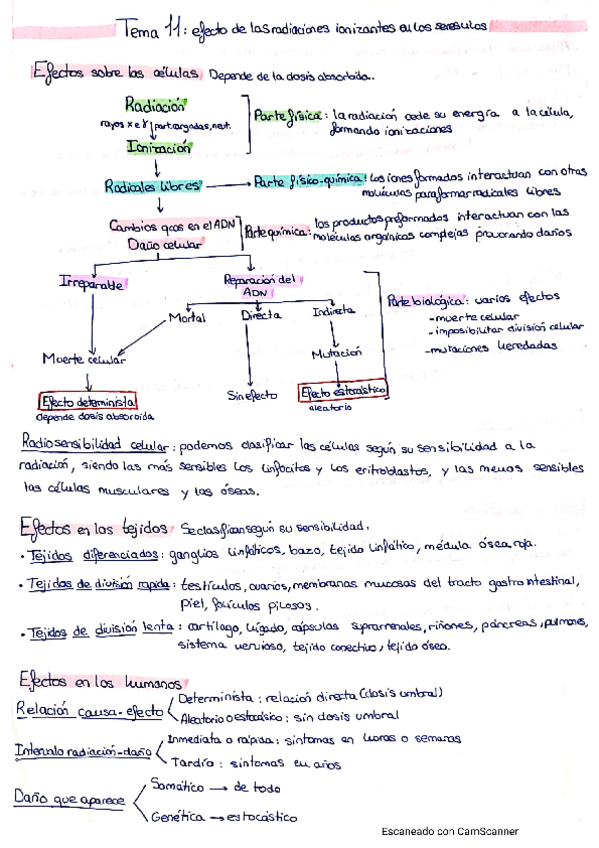 Tema 11: efecto de las radiaciones ionizantes en los seres vivos
Efectos sobre las células Depende de la dosis absorbida..
Radiación
rayos x e γ, part. cargadas, neut.
Parte física: la radiación cede su energía a la célula,
formando ionizaciones
Ionización
Radicales Libres
Parte físico-química: Los iones formados interactuan con otras
moléculas para formar radicales libres
Cambios qcos en el ADN
Daño celular
Parte química: los productos preformados interactuan con las
moléculas orgánicas complejas provocando daños
Irreparable
Reparación del
ADN
Mortal Directa Indirecta
Parte biológica: varios efectos
- muerte celular
- imposibilitar división celular
- mutaciones heredadas
Muerte celular
Mutación
Efecto determinista
depende dosis absorbida
Sin efecto
Efecto estocástico
aleatorio
Radiosensibilidad celular: podemos clasificar las células según su sensibilidad a la
radiación, siendo las más sensibles los linfocitos y los eritroblastos, y las menos sensibles
las células musculares y las óseas.
Efectos en los tejidos Se clasifican según su sensibilidad.
· Tejidos diferenciados: ganglios linfáticos, bazo, tejido linfático, médula ósea roja.
· Tejidos de división rapida: testículos, ovarios, membranas mucosas del tracto gastrointestinal,
piel, folículos pilosos.
· Tejidos de división lenta: cartílago, hígado, cápsulas suprarrenales, riñones, páncreas, pulmones,
sistema nervioso, tejido conectivo, tejido óseo.
Efectos en los humanos
Relación causa-efecto
Determinista: relación directa (dosis umbral)
Aleatorio o estocásico: sin dosis umbral
Intervalo radiación-daño
Inmediata o rapida: síntomas en horas o semanas
Tardío: síntomas en años
Daño que aparece
Somático → de todo
Genética → estocástico
Escaneado con CamScanner